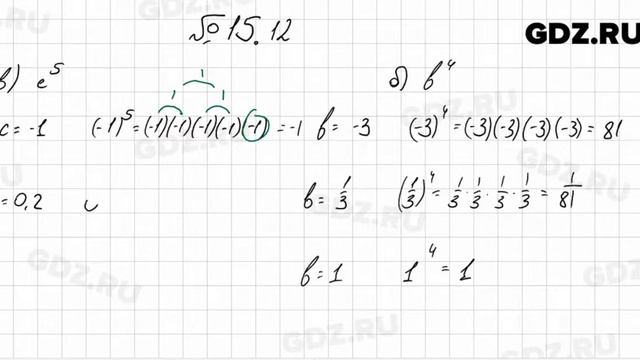 № 15.12
GDZ.RU
в) c⁵
c = -1 (-1)⁵ = (-1)(-1)(-1)(-1)(-1) = -1
1 1 1
= 0,2
б) b⁴
b = -3 (-3)⁴ = (-3)(-3)(-3)(-3) = 81
b = 1/3 (1/3)⁴ = 1/3 · 1/3 · 1/3 · 1/3 = 1/81
b = 1 1⁴ = 1
GDZ.RU
GDZ.RU
GDZ.RU
GDZ.RU
GDZ.RU